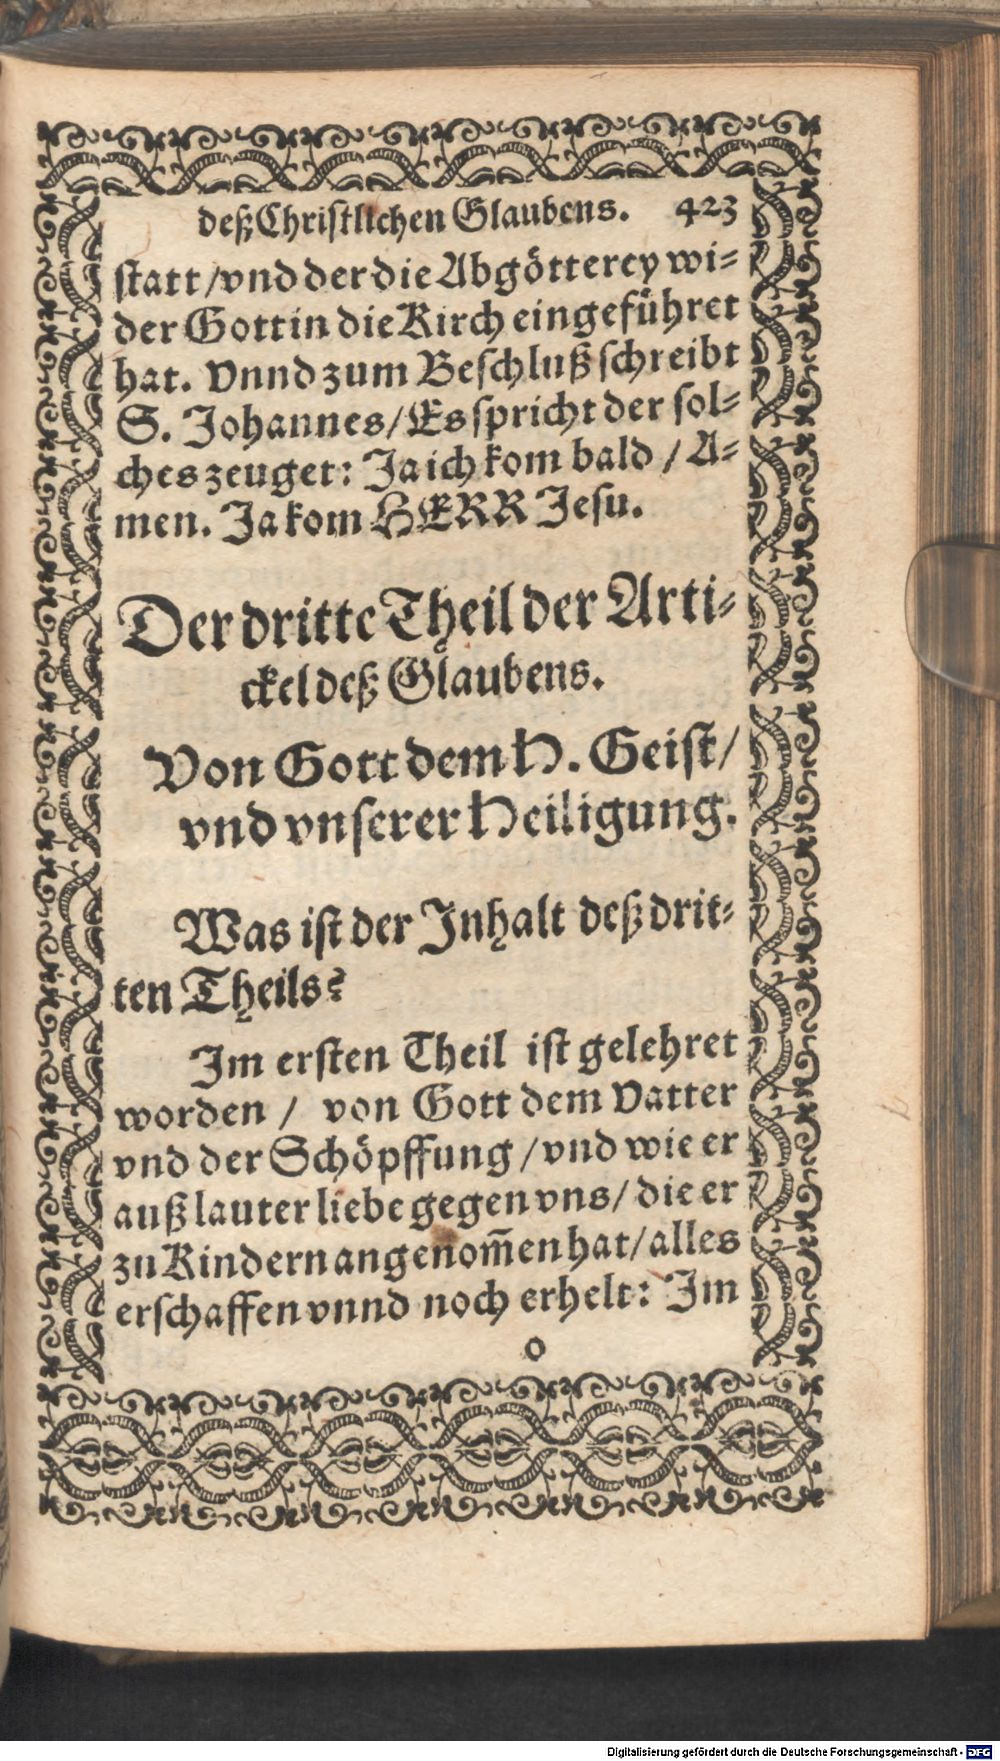 deß Christlichen Glaubens. 423
statt / vnd der die Abgötterey wi⸗
der Gott in die Kirch eingefuͤhret
hat. Vnnd zum Beschluß schreibt
S. Johannes / Es spricht der sol⸗
ches zeuget: Ja ich kom bald / A⸗
men. Ja kom HERR Jesu.
Der dritte Theil der Arti⸗
ckel deß Glaubens.
Von Gott dem H. Geist /
vnd vnserer Heiligung.
Was ist der Inhalt deß drit⸗
ten Theils?
Im ersten Theil ist gelehret
worden / von Gott dem Vatter
vnd der Schöpffung / vnd wie er
auß lauter liebe gegen vns / die er
zu Kindern angenom̃en hat / alles
erschaffen vnnd noch erhelt: Im
o
Digitalisierung gefördert durch die Deutsche Forschungsgemeinschaft - DFG